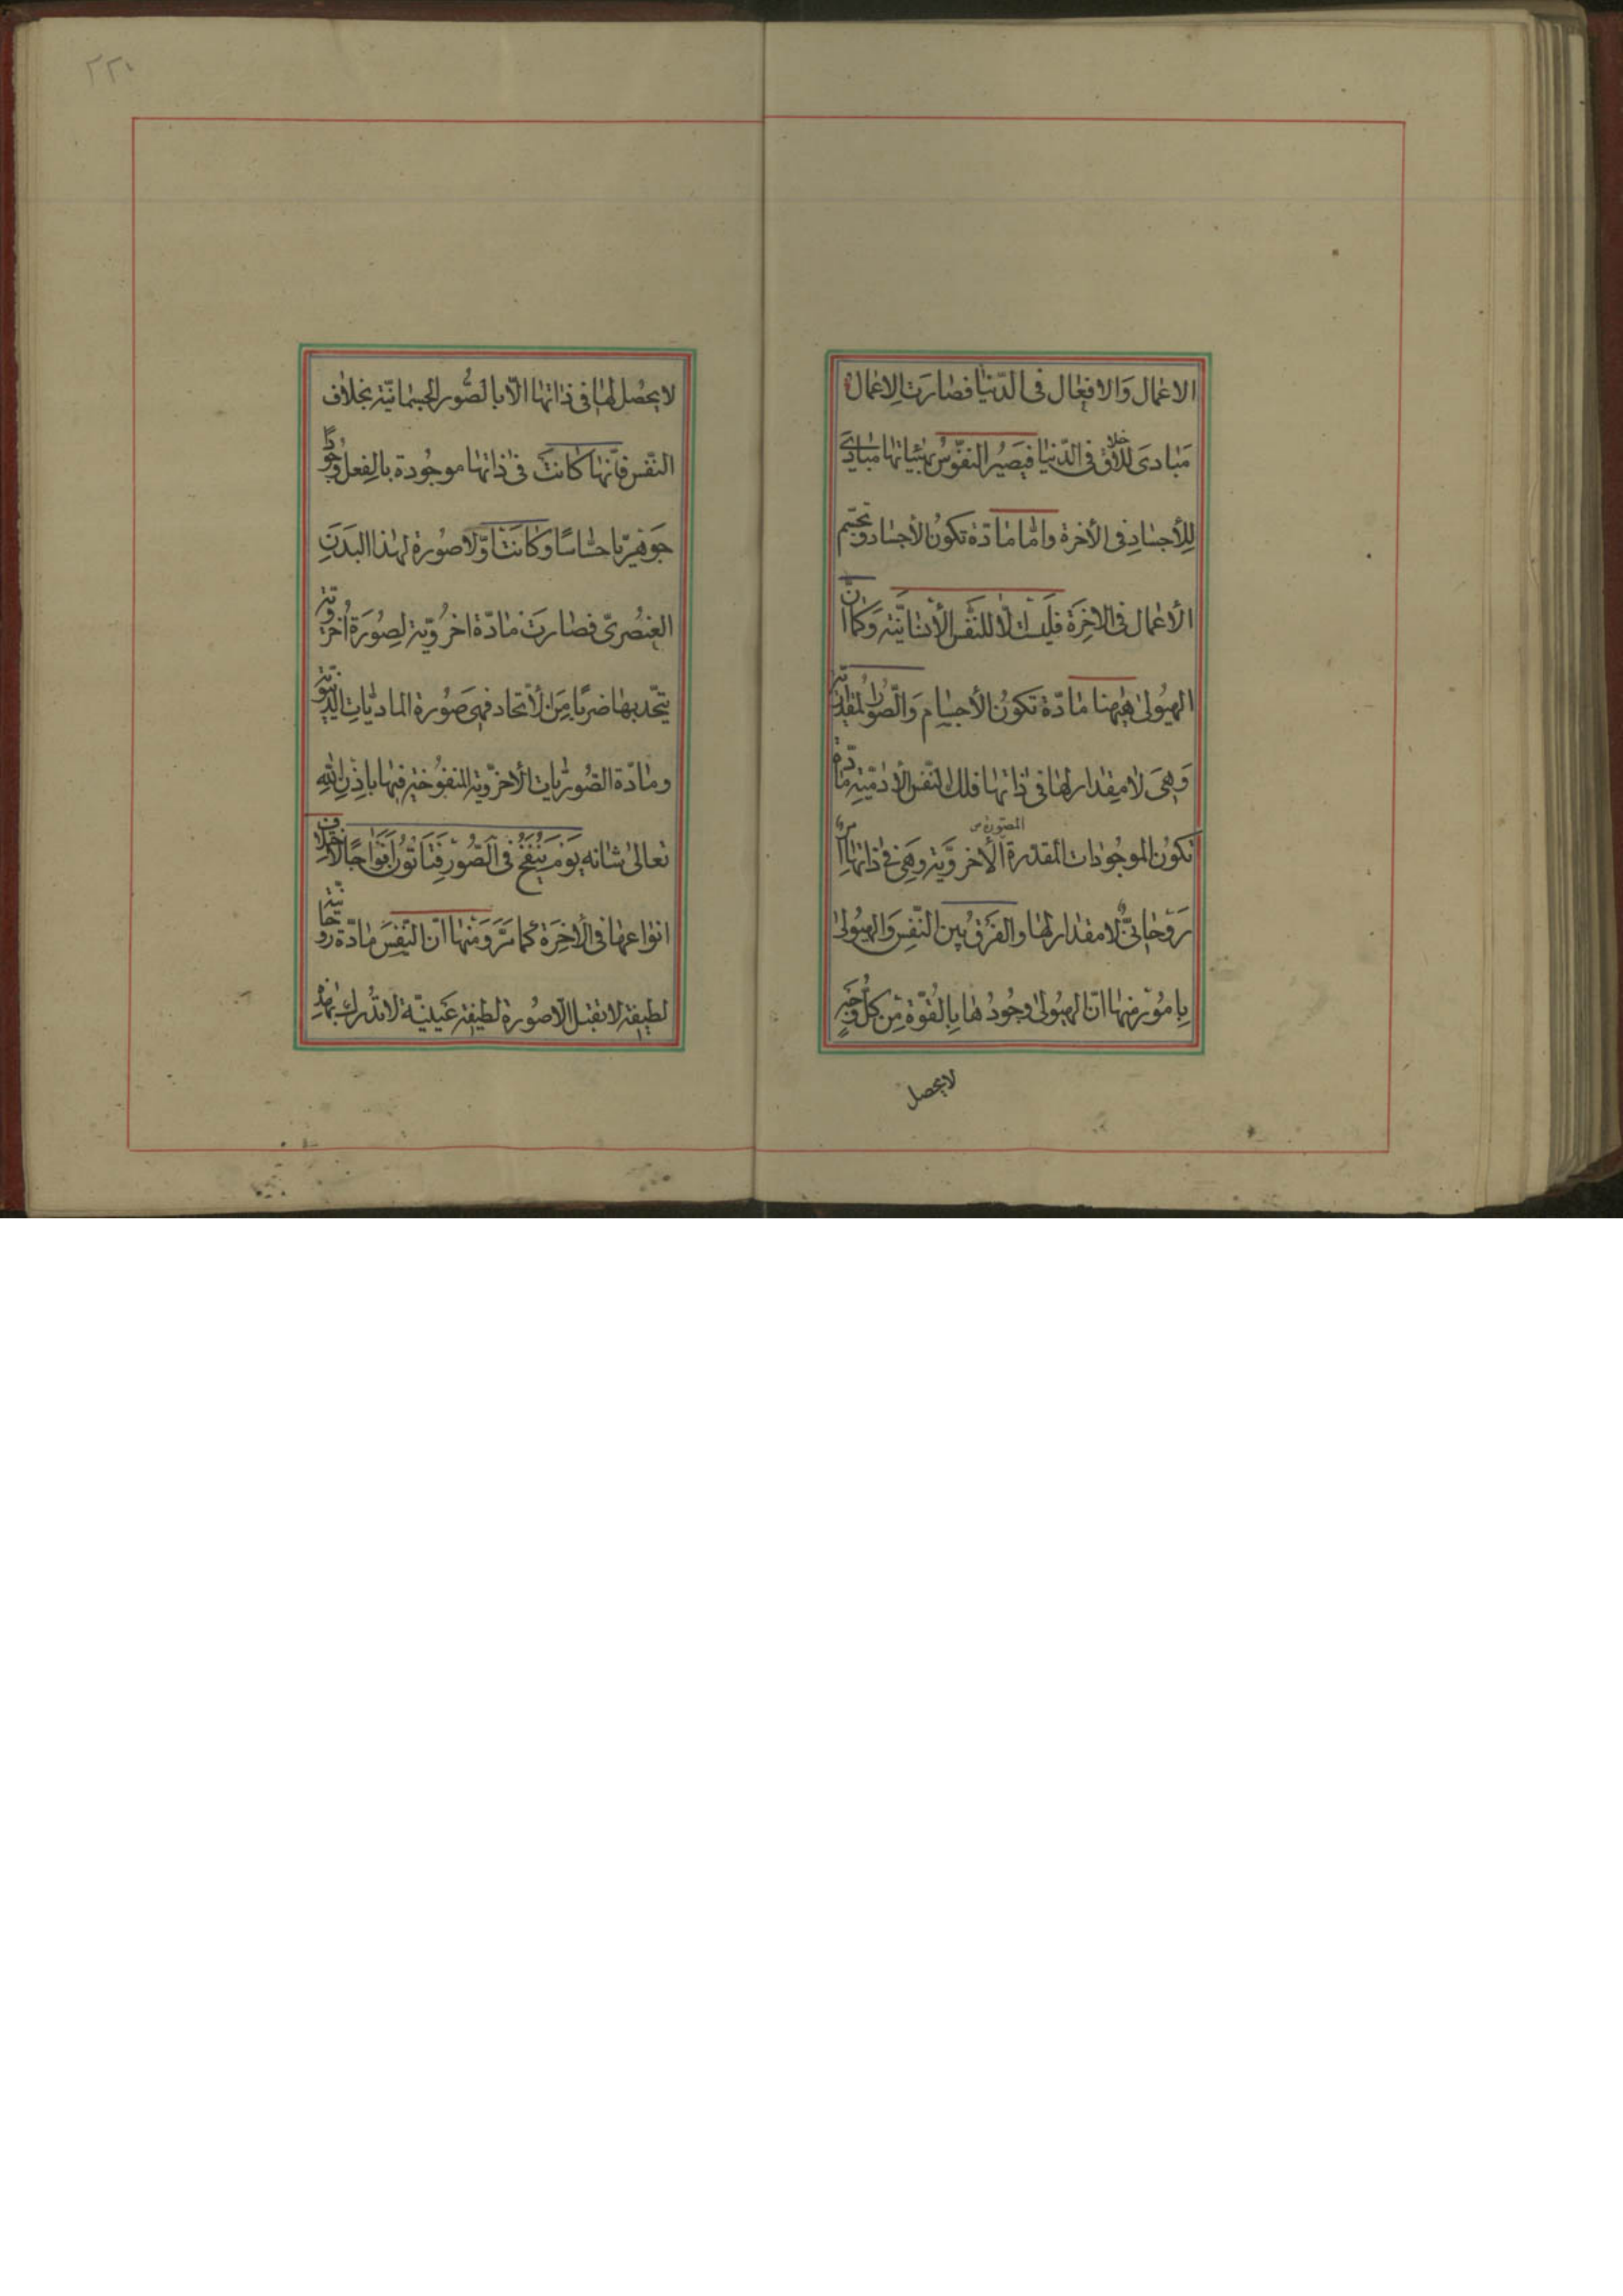 الاعمال والافعال فی الدّنیا فصارت الاعمال
مَبادی للأخلاق فی الدّنیا فیصیر النفوس بهیئاتها مبادیَ
للأجساد فی الأخرة وامّا مادّة تكوّن الأجساد وتجسّم
الأعمال فی الاخرة فلیست الّا للنّفس الأنسانیّة وَكما انّ
الهیُولیٰ هیٰهنا مادّة تكوّن الأجسام وَالصّور المقداریّة
وَهیَ لا مقدار لها فی ذاتها فلك النّفس الأدمیّة مادّة
المصوّرة ص
تكوّن الموجودات المقدّرة الأخرویّة وهی فی ذاتها امر
رَوحانیٌّ لا مقدار لها والفرق بین النّفس وَالهیُولیٰ
بامُور منها انّ الهیُولیٰ وجُودُها بِالقُوّة من كلّ وجهٍ
لا یحصل
۲۲۰
لا یحصل لها فی ذاتها الّا بالصُّور الجسمانیّة بخلاف
النّفس فانّها كانت فی ذاتها موجُودة بالفعل وجُودًا
جَوهریّا حسّاسًا وكانت اوّلا صُورة لهذا البدَنِ
العنصُریّ فصارت مادّة اخرُویّة لصُورَة اُخرویّة
یتّحد بها ضربًا مِنَ الأتّحاد فهی صُورة المادیّات الدّنیویّة
ومادّة الصّوریّات الأخرویّة المنفوخة فیها باذن اللّٰه
تعالیٰ شانه یَومَ یُنفَخُ فی الصّور فتأتون افواجًا لأختلاف
انواعها فی الأخرة كما مَرَّ وَمنها انّ النّفسَ مادّة روحانیّة
لطیفة لا تقبل الّا صُورة لطیفة غَیبیّة لا تُدرك بهذه